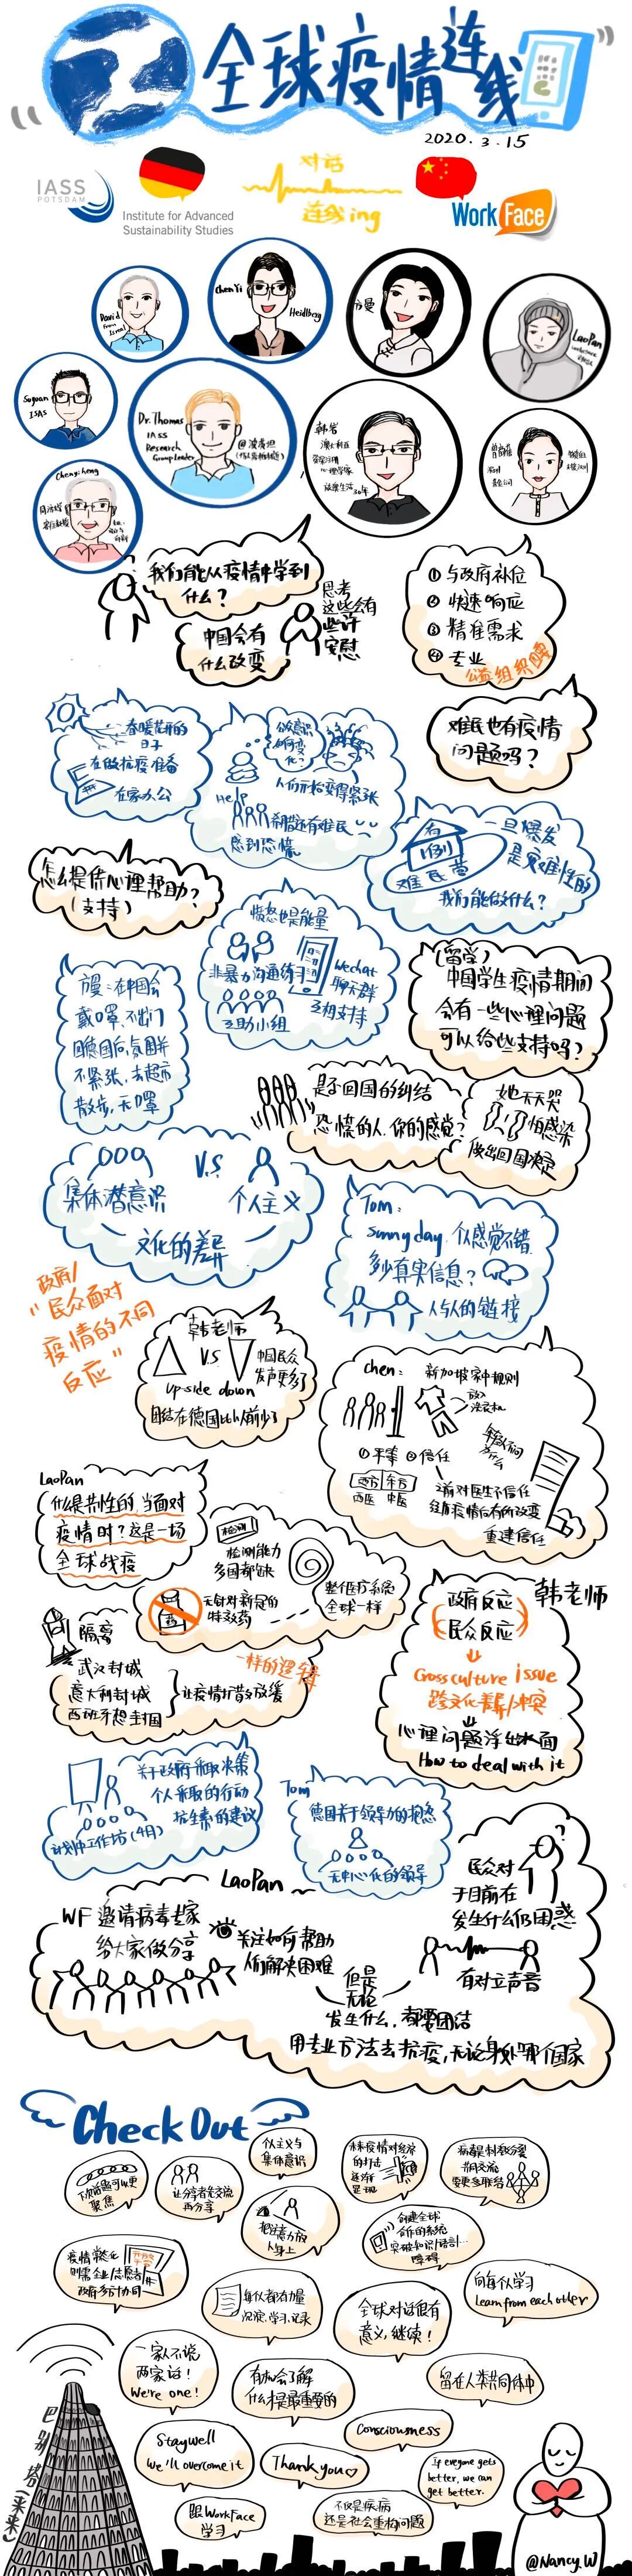 全球疫情连线
2020.3.15
IASS
POTSDAM
Institute for Advanced
Sustainability Studies
对话
连线ing
WorkFace
David
from
Isreal
Chen Yi
Heidlberg
方曼
LaoPan
Suyuan
ISAS
Dr.Thomas
IASS
Research
Group Leader
韩岩
澳大利亚
心理学家
旅德生活30年
Chenyicheng
我们能从疫情中学到
什么?
中国会有
什么改变
思考
这些会有
些许
安慰
①与政府补位
②快速响应
③精准需求
④专业
公益组织
难民也有疫情
问题吗?
春暖花开的
日子
在做抗疫准备
在家办公
公众意识
如何变
化?
人们开始变得紧张
Help
希腊还有难民
感到恐慌
有
1例
难民营
一旦爆发
是灾难性的
我们能做什么?
怎么提供心理帮助?
(支持)
愤怒也是能量
非暴力沟通练习
互助小组
Wechat
聊天群
互相支持
(留学)
中国学生疫情期间
会有一些心理问题
可以给些支持吗?
方曼:在中国会
戴口罩,不出门
回德国后,氛围并
不紧张,去超市
散步,无口罩
是否回国的纠结
恐慌的人,你的感觉?
她天天哭
怕感染
做出回国决定
V.S
集体潜意识
个人主义
文化的差异
Tom:
sunny day.个人感觉不错
多少真果信息?
人与人的链接
政府/
"民众面对
疫情的不同
反应"
韩老师
V.S
up-side down
中国民众
发声更多了
团结在德国比以前少了
chen:
新加坡家中规则
放入
洗衣机
①平等 ②信任
西方 东方
西医 中医
之前对医生不信任
经历疫情后有所改变
重建信任
LaoPan
什么是共性的,当面对
疫情时?这是一场
全球战疫
检测
检测能力
多国都缺
无针对新冠的
特效药
整个医疗系统
全球一样
隔离
武汉封城
意大利封城
西班牙想封国
让疫情扩散放缓
一样的逻辑
韩老师
政府反应
民众反应
Cross culture issue
跨文化差异/冲突
心理问题浮出水面
How to deal with it
关于政府采取决策
个人采取的行动
抗生素的建议
计划中工作坊(4月)
Tom
德国关于领导力的抱怨
无中心化的领导
LaoPan
WF邀请病毒专家
给大家做分享
关注如何帮助
人们解决困难
民众对
于目前在
发生什么仍困惑
有对立声音
但是
无论
发生什么,都要团结
用专业方法去抗疫,无论身处哪个国家
Check Out
下次话题可以更
聚焦
让分享者先交流
再分享
个人主义与
集体意识
未来疫情对经济
的打击
逐渐
显现
病毒是共同敌人
共同交流
要更多联合
把注意力放
人身上
创建全球
合作的系统
突破知识/语言...
障碍
疫情常态化
则需企业/志愿者
政府多方协同
每个人都有力量
沉淀,学习,记录
全球对话很有
意义,继续!
向每个人学习
Learn from each other
一家人不说
两家话!
We're one!
有机会了解
什么才是最重要的
留在人类共同体中
Stay Well
We'll overcome it
Consciousness
Thank you
If everyone gets
better, we can
get better.
跟WorkFace
学习
不仅是疾病
还是社会重构问题
巴别塔(未来)
@Nancy.W